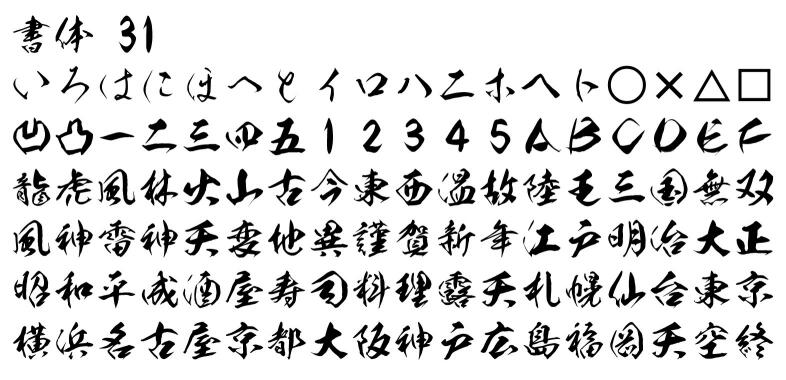 書体 31
いろはにほへと イロハニホヘト○×△□
凹凸一二三四五12345ABCDEF
龍虎風林火山古今東西温故陸毛三国無双
風神雷神天変地異謹賀新年江戸明治大正
昭和平成酒屋寿司料理露天札幌仙台東京
横浜名古屋京都大阪神戸広島福岡天空終